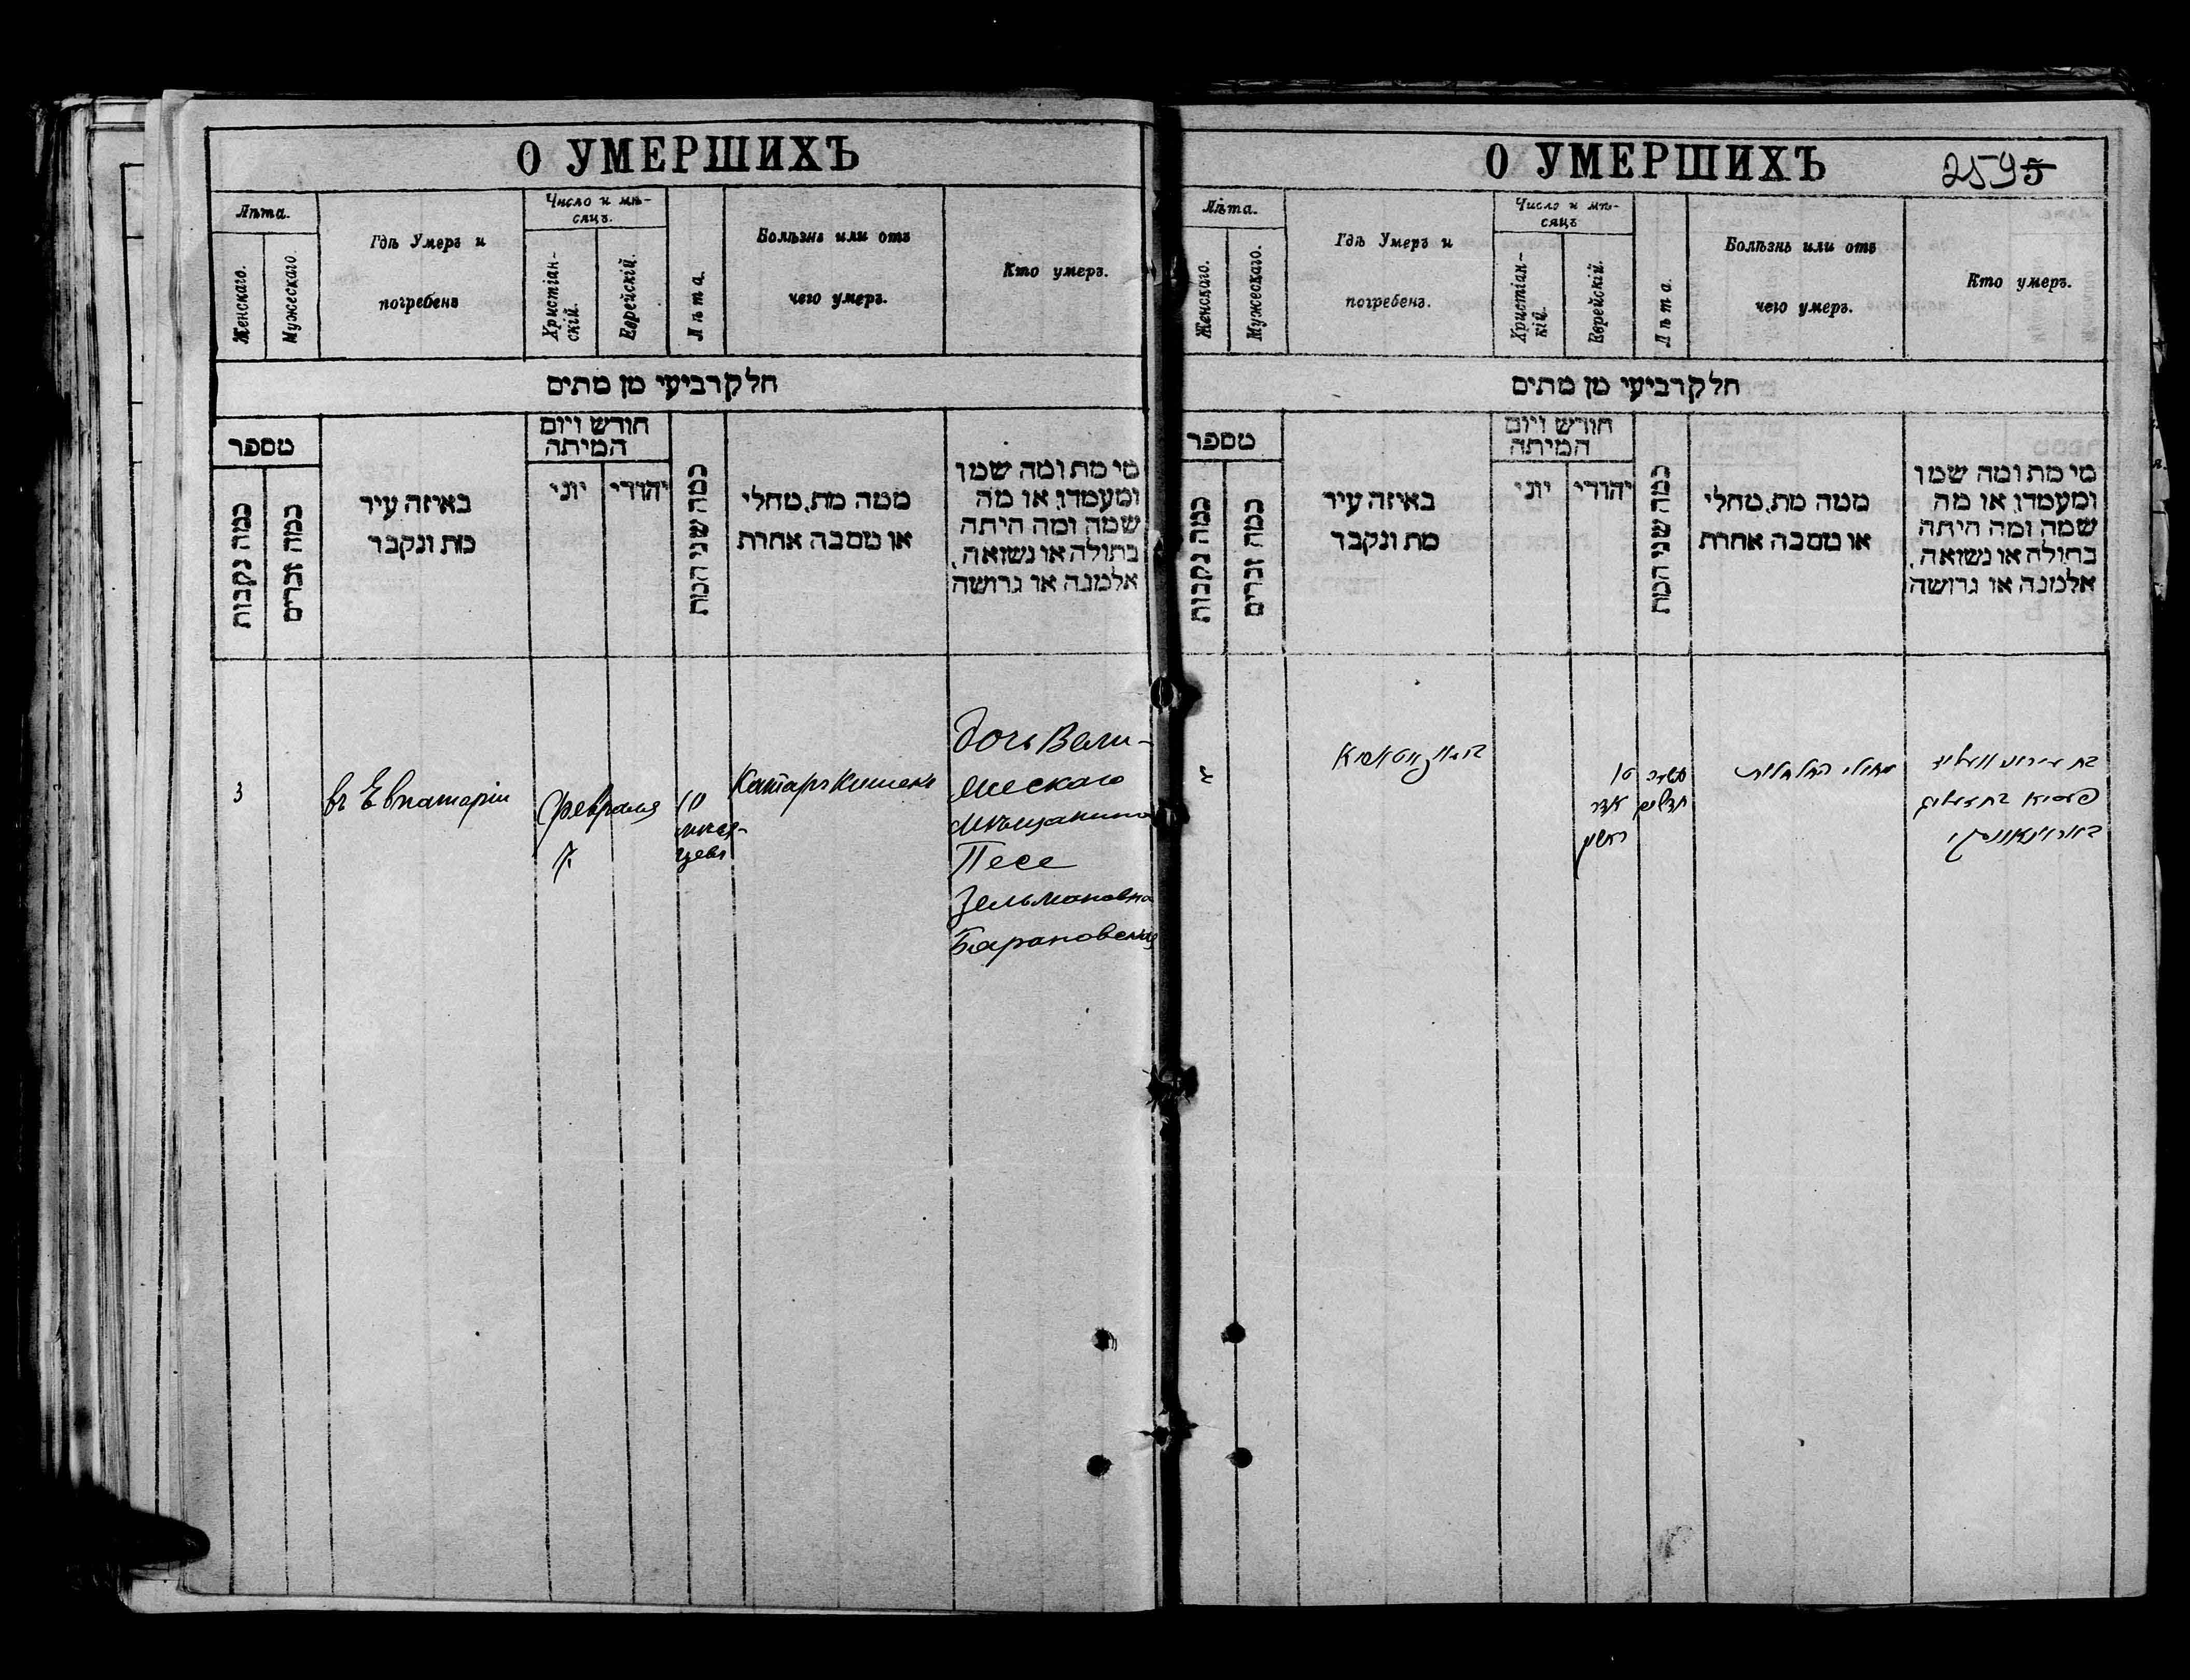 О УМЕРШИХЪ
Лѣта.
Женскаго.
Мужескаго.
Гдѣ Умеръ и
погребенъ
Число и мѣ-
сяцъ.
Христіан-
скій.
Еврейскій.
Лѣта.
Болѣзнь или отъ
чего умеръ.
Кто умеръ.
חלק רביעי מן מתים
מספר
כמה נקבות
כמה זכרים
באיזה עיר
מת ונקבר
חודש ויום
המיתה
יוני
יהודי
כמה שני המת
ממה מת, מחלי
או מסבה אחרת
מי מת ומה שמו
ומעמדו, או מה
שמה ומה היתה
בתולה או נשואה,
אלמנה או גרושה
3
въ Евпаторіи
Февраля
7.
10
мѣся-
цевъ
Катаръ Кишекъ
дочь Вели-
жескаго
мѣщанина
Песе
Зельмановна
Барановская
О УМЕРШИХЪ
2595
Лѣта.
Женскаго.
Мужескаго.
Гдѣ Умеръ и
погребенъ.
Число и мѣ-
сяцъ
Христіан-
кій.
Еврейскій.
Лѣта.
Болѣзнь или отъ
чего умеръ.
Кто умеръ.
חלק רביעי מן מתים
מספר
כמה נקבות
כמה זכרים
באיזה עיר
מת ונקבר
חודש ויום
המיתה
יוני
יהודי
כמה שני המת
ממה מת, מחלי
או מסבה אחרת
מי מת ומה שמו
ומעמדו, או מה
שמה ומה היתה
בתולה או נשואה,
אלמנה או גרושה
אדר
ראשון
עשרה
חדשים
מחולי
בת עירוני